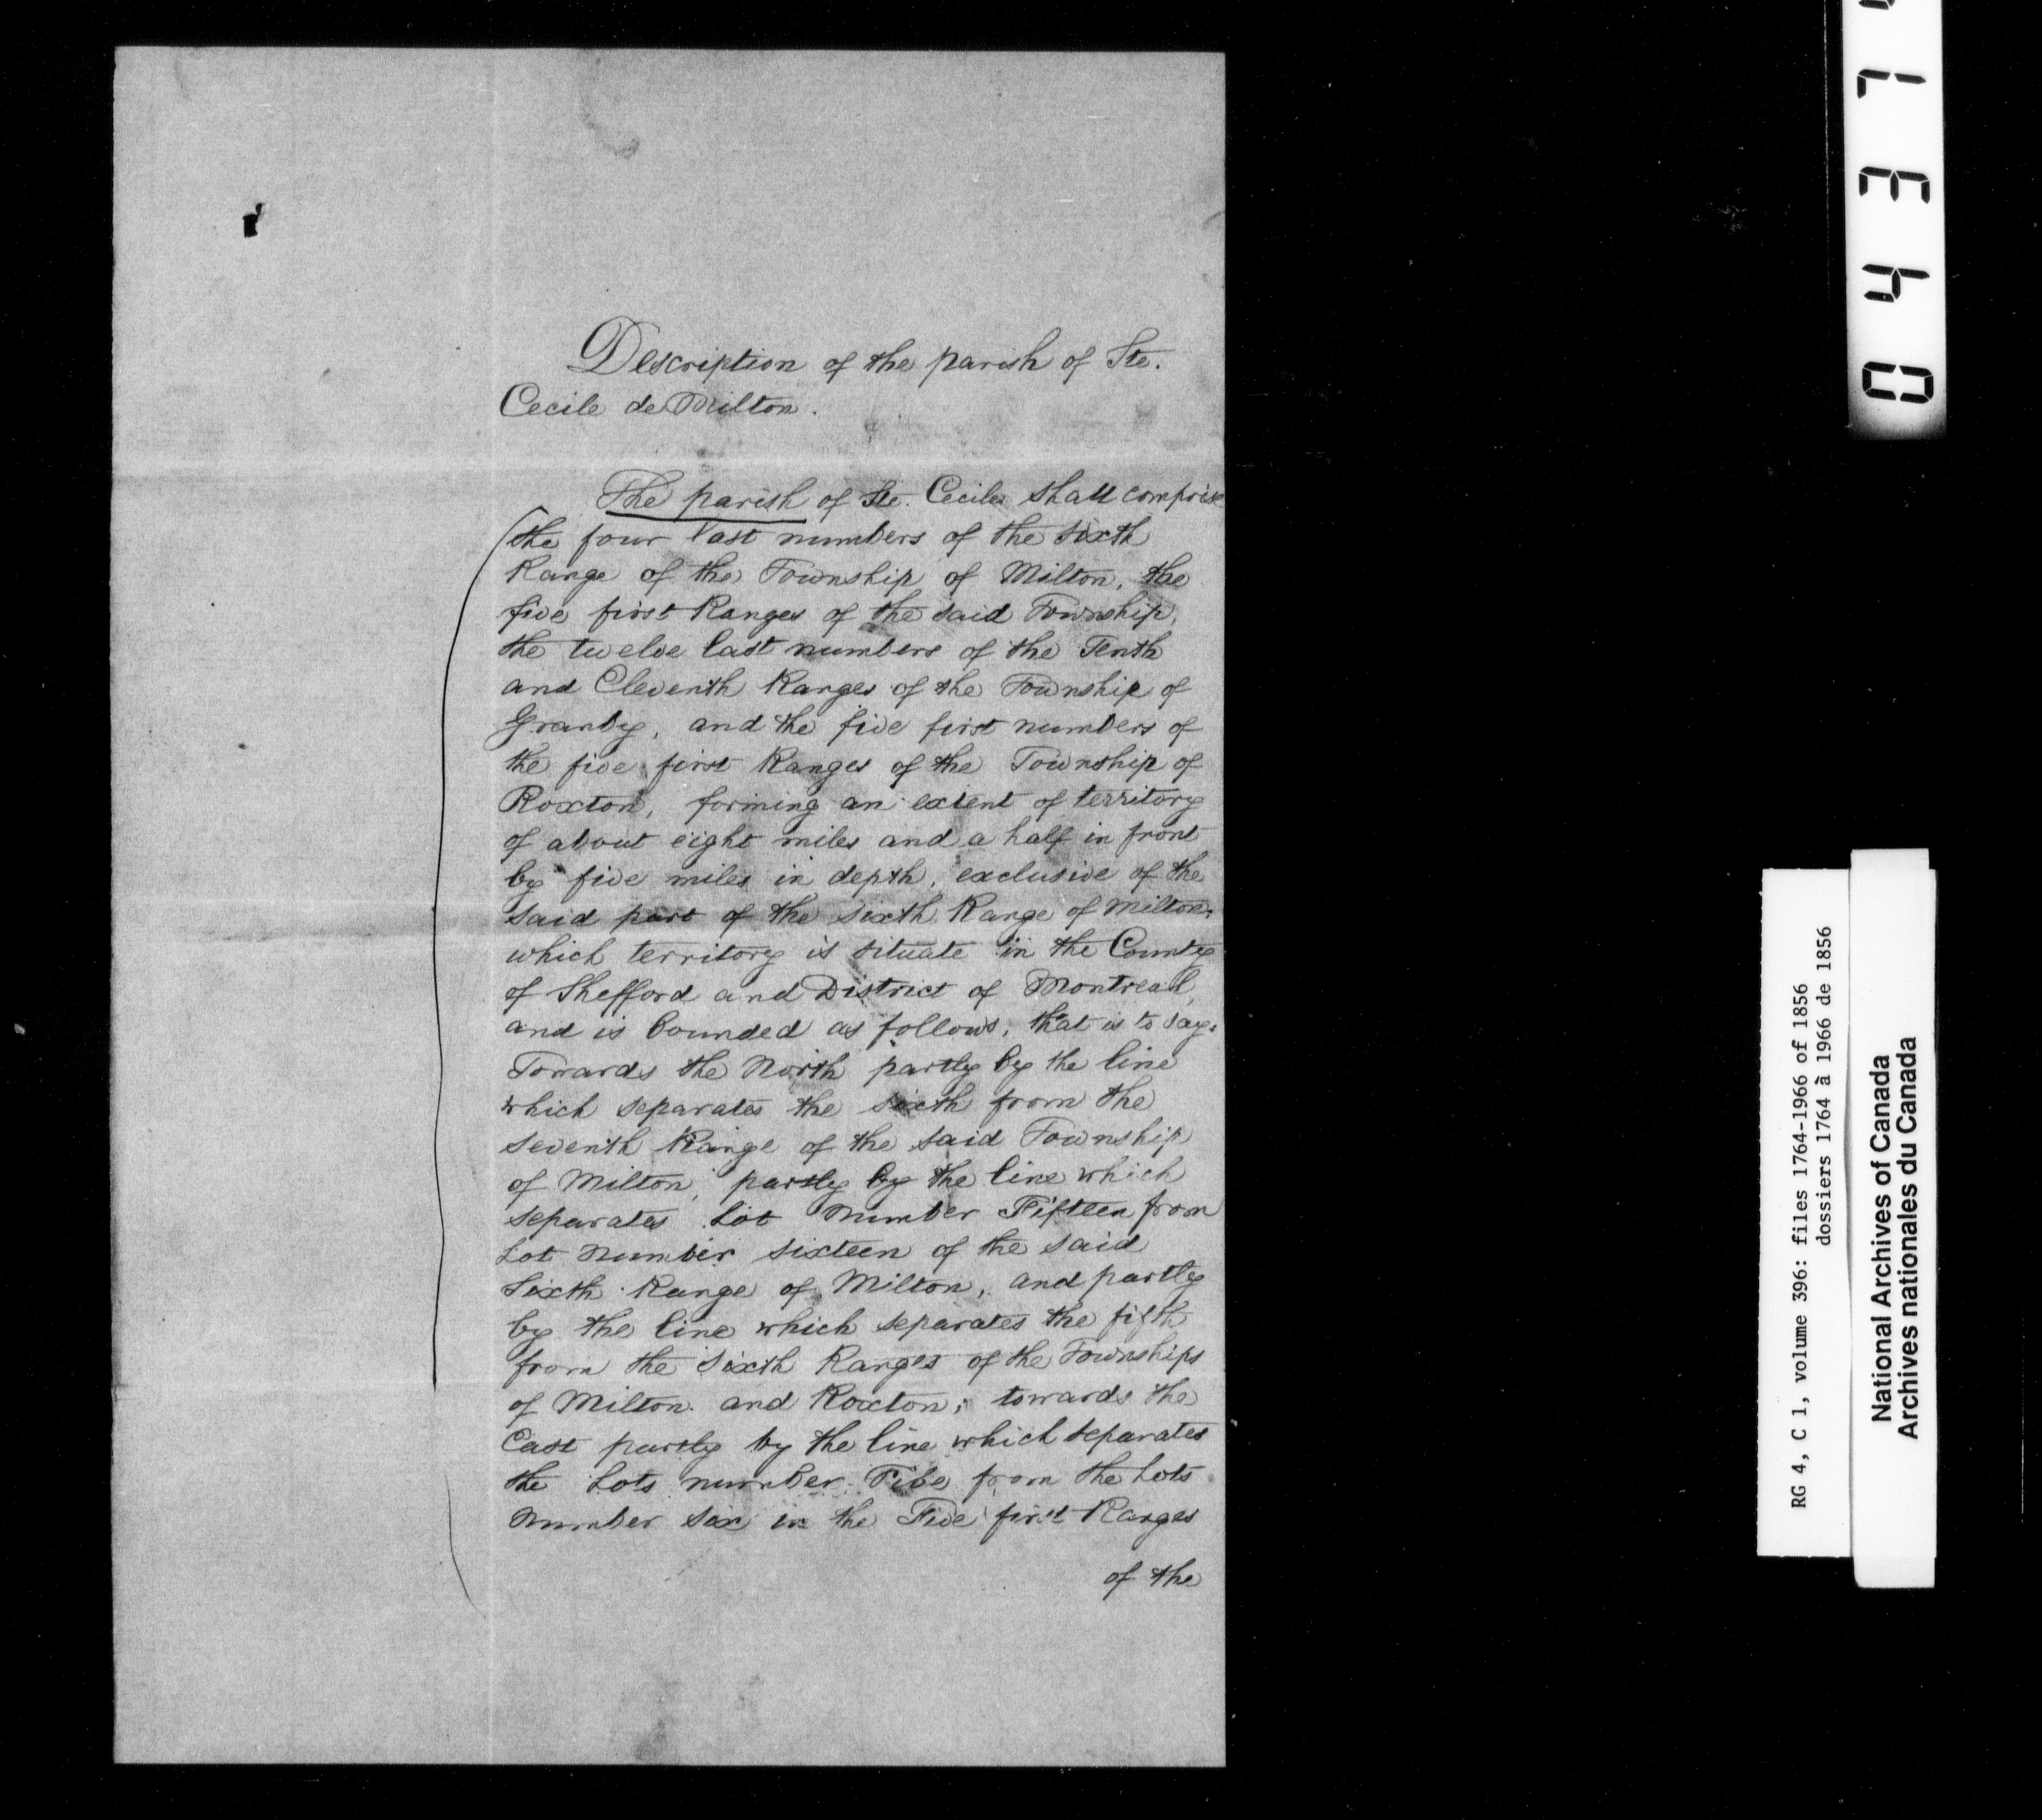 Description of the parish of Ste.
Cecile de Milton.
The parish of Ste. Cecile shall comprise
the four last numbers of the sixth
Range of the Township of Milton, the
five first Ranges of the said Township,
the twelve last numbers of the Tenth
and Eleventh Ranges of the Township of
Granby, and the five first numbers of
the five first Ranges of the Township of
Roxton, forming an extent of territory
of about eight miles and a half in front
by five miles in depth, exclusive of the
said part of the sixth Range of Milton,
which territory is situate in the County
of Shefford and District of Montreal,
and is bounded as follows, that is to say:
Towards the North partly by the line
which separates the sixth from the
seventh Range of the said Township
of Milton, partly by the line which
separates Lot Number Fifteen from
Lot Number sixteen of the said
Sixth Range of Milton, and partly
by the line which separates the fifth
from the Sixth Ranges of the Townships
of Milton and Roxton; towards the
East partly by the line which separates
the Lots number Five from the Lots
Number Six in the Five first Ranges
of the
0437
RG 4, C 1, volume 396: files 1764-1966 of 1856
dossiers 1764 à 1966 de 1856
National Archives of Canada
Archives nationales du Canada